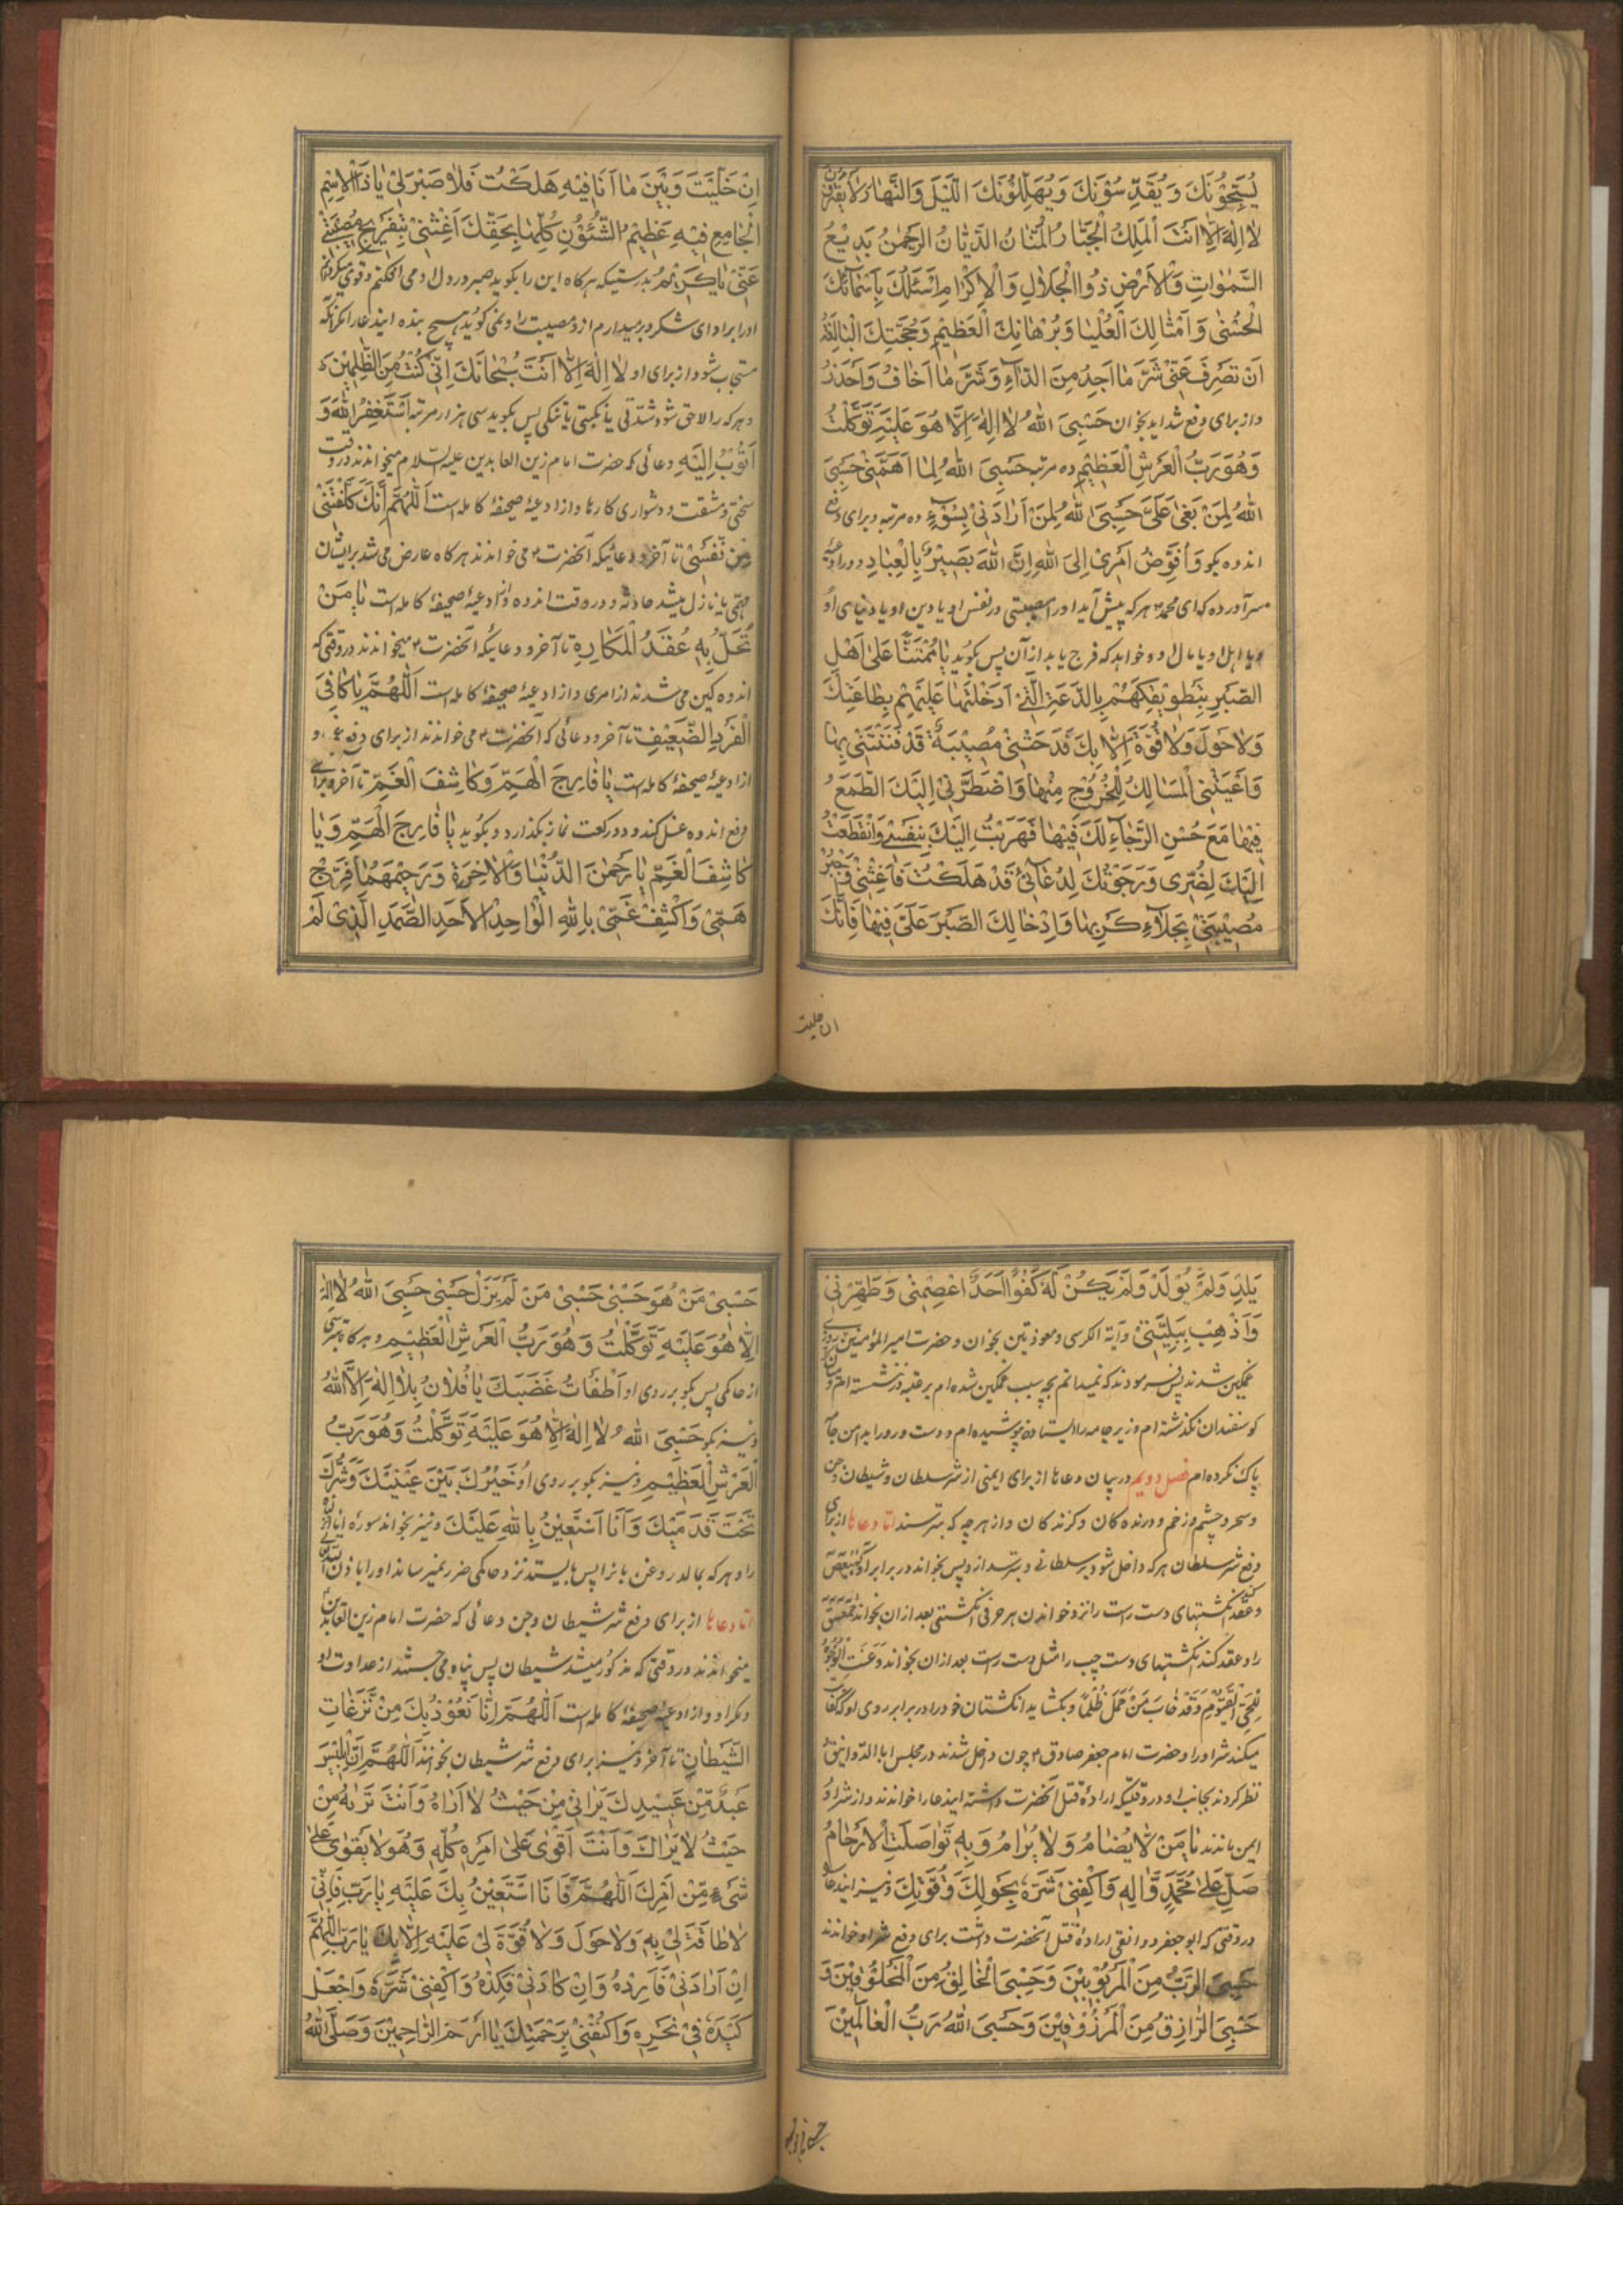 يُسَبِّحُونَكَ وَ يُقَدِّسُونَكَ وَ يُهَلِّلُونَكَ اللَّيْلَ وَ النَّهَارَ لَا يَفْتُرُونَ
لَا اِلٰهَ اِلَّا اَنْتَ الْمَلِكُ الْجَبَّارُ الْمَنَّانُ الدَّيَّانُ الرَّحْمٰنُ بَدِيْعُ
السَّمٰوَاتِ وَ الْاَرْضِ ذُو الْجَلَالِ وَ الْاِكْرَامِ اَسْئَلُكَ بِاَسْمَائِكَ
الْحُسْنٰى وَ اَمْثَالِكَ الْعُلْيَا وَ بُرْهَانِكَ الْعَظِيْمِ وَ حُجَّتِكَ الْبَالِغَةِ
اَنْ تَصْرِفَ عَنِّيْ شَرَّ مَا اَجِدُ مِنَ الدَّاءِ وَ شَرَّ مَا اَخَافُ وَ اَحْذَرُ
و از برای دفع شداید بخوان حَسْبِيَ اللهُ لَا اِلٰهَ اِلَّا هُوَ عَلَيْهِ تَوَكَّلْتُ
وَ هُوَ رَبُّ الْعَرْشِ الْعَظِيْمِ ده مرتبه حَسْبِيَ اللهُ لِمَا اَهَمَّنِيْ حَسْبِيَ
اللهُ لِمَنْ بَغٰى عَلَيَّ حَسْبِيَ اللهُ لِمَنْ اَرَادَنِيْ بِسُوْءٍ ده مرتبه و برای دفع
اندوه بگو وَ اُفَوِّضُ اَمْرِيْ اِلَى اللهِ اِنَّ اللهَ بَصِيْرٌ بِالْعِبَادِ و در ادعیه
سر آورده که ای محمد هر که پیش آید او را مصیبتی در نفس او یا دین او یا دنیای او
و یا اهل او یا مال او و خواهد که فرج یابد از آن پس بگوید يَا مُمْتَنًّا عَلٰى اَهْلِ
الصَّبْرِ بِتَطْوِيْقِكَهُمْ بِالدَّعَةِ الَّتِيْ اَدْخَلْتَهَا عَلَيْهِمْ بِطَاعَتِكَ
وَ لَا حَوْلَ وَ لَا قُوَّةَ اِلَّا بِكَ فَدَحَتْنِيْ مُصِيْبَةٌ قَدْ فَتَنَتْنِيْ بِهَا
وَ اَعْيَتْنِي الْمَسَالِكُ لِلْخُرُوْجِ مِنْهَا وَ اضْطَرَّنِيْ اِلَيْكَ الطَّمَعُ
فِيْهَا مَعَ حُسْنِ الرَّجَاءِ لَكَ فِيْهَا فَهَرَبْتُ اِلَيْكَ بِنَفْسِيْ وَ انْقَطَعْتُ
اِلَيْكَ لِضُرِّى وَ رَجَوْتُكَ لِدُعَائِيْ قَدْ هَلَكْتُ فَاَغِثْنِيْ وَ اجْبُرْ
مُصِيْبَتِيْ بِجَلَاءِ كَرْبِهَا وَ اِدْخَالِكَ الصَّبْرَ عَلَيَّ فِيْهَا فَاِنَّكَ
ان خلیت
اِنْ خَلَّيْتَ وَ بَيْنَ مَا اَنَا فِيْهِ هَلَكْتُ فَلَا صَبْرَ لِيْ يَا ذَا الْاِسْمِ
الْجَامِعِ فِيْهِ عَظِيْمُ الشُّئُوْنِ كُلِّهَا بِحَقِّكَ اَغِثْنِيْ بِتَفْرِيْجِ مُصِيْبَتِيْ
عَنِّيْ يَا كَرِيْمُ بدرستیکه هر کاه این را بگوید صبر در دل او می افکنم و قوی میکردانم
او را برادای شکر و بر میدارم از او مصیبت را و نمی کوید هیچ بنده اینها را مگر آنکه
مستجاب شود از برای او لَا اِلٰهَ اِلَّا اَنْتَ سُبْحَانَكَ اِنِّيْ كُنْتُ مِنَ الظّٰلِمِيْنَ
و هر که را لاحق شود شدّتی یا نکبتی یا تنکی پس بگوید سی هزار مرتبه اَسْتَغْفِرُ اللهَ وَ
اَتُوْبُ اِلَيْهِ دعائی که حضرت امام زین العابدین علیه السلام میخواندند در وقت
سختی و مشقت و دشواری کارها و از ادعیهٔ صحیفهٔ کامله است اَللّٰهُمَّ اِنَّكَ كَلَّفْتَنِيْ
مِنْ نَفْسِيْ تا آخر و دعائیکه آنحضرت می خواندند هر کاه عارض می شد برایشان
مهمّی یا نازل میشد حادثه و در وقت اندوه و از ادعیهٔ صحیفهٔ کامله است يَا مَنْ
تُحَلُّ بِهِ عُقَدُ الْمَكَارِهِ تا آخر و دعائیکه آنحضرت میخواندند در وقتی که
اندوهکین می شدند از امری و از ادعیهٔ صحیفهٔ کامله است اَللّٰهُمَّ يَا كَافِيَ
الْفَرْدِ الضَّعِيْفِ تا آخر و دعائی که آنحضرت می خواندند از برای دفع غم و
از ادعیهٔ صحیفهٔ کامله است يَا فَارِجَ الْهَمِّ وَ كَاشِفَ الْغَمِّ تا آخر و برای
دفع اندوه غسل کند و دو رکعت نماز بگذارد و بگوید يَا فَارِجَ الْهَمِّ وَ يَا
كَاشِفَ الْغَمِّ يَا رَحْمٰنَ الدُّنْيَا وَ الْاٰخِرَةِ وَ رَحِيْمَهُمَا فَرِّجْ
هَمِّيْ وَ اكْشِفْ غَمِّيْ يا اللهُ الْوَاحِدُ الْاَحَدُ الصَّمَدُ الَّذِيْ لَمْ
يَلِدْ وَ لَمْ يُوْلَدْ وَ لَمْ يَكُنْ لَهُ كُفُوًا اَحَدٌ اعْصِمْنِيْ وَ طَهِّرْنِيْ
وَ اَذْهِبْ بِبَلِيَّتِيْ و آیة الکرسی و معوذتین بخوان و حضرت امیر المؤمنین روزی
غمکین شدند پس فرمودند که نمیدانم بچه سبب غمکین شده ام بر عتبه در ننشسته ام و میان
کوسفندان نکذشته ام و زیرجامه را ایستاده نپوشیده ام و دست و رو را بدامن جامه
پاک نکرده ام فصل دویم در بیان دعاها از برای ایمنی از شر سلطان و شیطان و جن
و سحر و چشم زخم و درنده کان و کزنده کان و از هر چه که بترسند امّا دعاها از برای
دفع شر سلطان هر که داخل شود بر سلطانی و بترسد از او پس بخواند در برابر او كٓهٰيٰعٓصٓ
و عقد کند انکشتهای دست راست را نزد خواندن هر حرفی انکشتی بعد از ان بخواند حٰمٓعٓسٓقٓ
را و عقد کند انکشتهای دست چپ را مثل دست راست بعد از ان بخواند وَ عَنَتِ الْوُجُوْهُ
لِلْحَيِّ الْقَيُّوْمِ وَ قَدْ خَابَ مَنْ حَمَلَ ظُلْمًا و بکشاید انکشتان خود را در برابر روی او که کفایت
میکند شر او را و حضرت امام جعفر صادق چون داخل شدند در مجلس ابا الدوانیق
نظر کردند بجانب او در وقتیکه ارادهٔ قتل آنحضرت داشته اینعا را خواندند و از شر او
ایمن ماندند يَا مَنْ لَا يُضَامُ وَ لَا يُرَامُ وَ بِهِ تَوَاصَلَتِ الْاَرْحَامُ
صَلِّ عَلٰى مُحَمَّدٍ وَّ اٰلِهِ وَ اكْفِنِيْ شَرَّهُ بِحَوْلِكَ وَ قُوَّتِكَ و نیز ایندعا
در وقتی که ابو جعفر دوانقی ارادهٔ قتل آنحضرت داشت برای دفع شر او خواندند
حَسْبِيَ الرَّبُّ مِنَ الْمَرْبُوْبِيْنَ وَ حَسْبِيَ الْخَالِقُ مِنَ الْمَخْلُوْقِيْنَ وَ
حَسْبِيَ الرَّازِقُ مِنَ الْمَرْزُوْقِيْنَ وَ حَسْبِيَ اللهُ رَبُّ الْعَالَمِيْنَ
حَسْبِيْ مَنْ هُوَ حَسْبِيْ حَسْبِيْ مَنْ لَمْ يَزَلْ حَسْبِيْ حَسْبِيَ اللهُ لَا اِلٰهَ
اِلَّا هُوَ عَلَيْهِ تَوَكَّلْتُ وَ هُوَ رَبُّ الْعَرْشِ الْعَظِيْمِ و هر کاه بترسی
از حاکمی پس بکو بر روی او اَطْفَأْتُ غَضَبَكَ يَا فُلَانُ بِلَا اِلٰهَ اِلَّا اللهُ
و نیز بکو حَسْبِيَ اللهُ لَا اِلٰهَ اِلَّا هُوَ عَلَيْهِ تَوَكَّلْتُ وَ هُوَ رَبُّ
الْعَرْشِ الْعَظِيْمِ و نیز بکو بر روی او خَيْرُكَ بَيْنَ عَيْنَيْكَ وَ شَرُّكَ
تَحْتَ قَدَمَيْكَ وَ اَنَا اَسْتَعِيْنُ بِاللهِ عَلَيْكَ و نیز بخواند سورهٔ انا انزلناه
را و هر که بمالد روغن بانرا پس بایستد نزد حاکمی ضرر نمیرساند او را باذن
امّا دعاها از برای دفع شر شیطان و جن دعائی که حضرت امام زین العابدین
میخواندند در وقتی که مذکور میشد شیطان پس پناه می جستند از عداوت او
و مکر او و از ادعیهٔ صحیفهٔ کامله است اَللّٰهُمَّ اِنَّا نَعُوْذُ بِكَ مِنْ نَزَغَاتِ
الشَّيْطَانِ تا آخر و نیز برای دفع شر شیطان بخوانند اَللّٰهُمَّ اِنَّ اِبْلِيْسَ
عَبْدٌ مِّنْ عَبِيْدِكَ يَرَانِيْ مِنْ حَيْثُ لَا اَرَاهُ وَ اَنْتَ تَرَاهُ مِنْ
حَيْثُ لَا يَرَاكَ وَ اَنْتَ اَقْوٰى عَلٰى اَمْرِهِ كُلِّهِ وَ هُوَ لَا يَقْوٰى عَلٰى
شَيْءٍ مِّنْ اَمْرِكَ اَللّٰهُمَّ فَاَنَا اَسْتَعِيْنُ بِكَ عَلَيْهِ يَا رَبِّ فَاِنِّيْ
لَا طَاقَةَ لِيْ بِهِ وَ لَا حَوْلَ وَ لَا قُوَّةَ لِيْ عَلَيْهِ اِلَّا بِكَ يَا رَبِّ اَللّٰهُمَّ
اِنْ اَرَادَنِيْ فَاَرِدْهُ وَ اِنْ كَادَنِيْ فَكِدْهُ وَ اكْفِنِيْ شَرَّهُ وَ اجْعَلْ
كَيْدَهُ فِيْ نَحْرِهِ وَ اكْفِنِيْ بِرَحْمَتِكَ يَا اَرْحَمَ الرَّاحِمِيْنَ وَ صَلَّى اللهُ